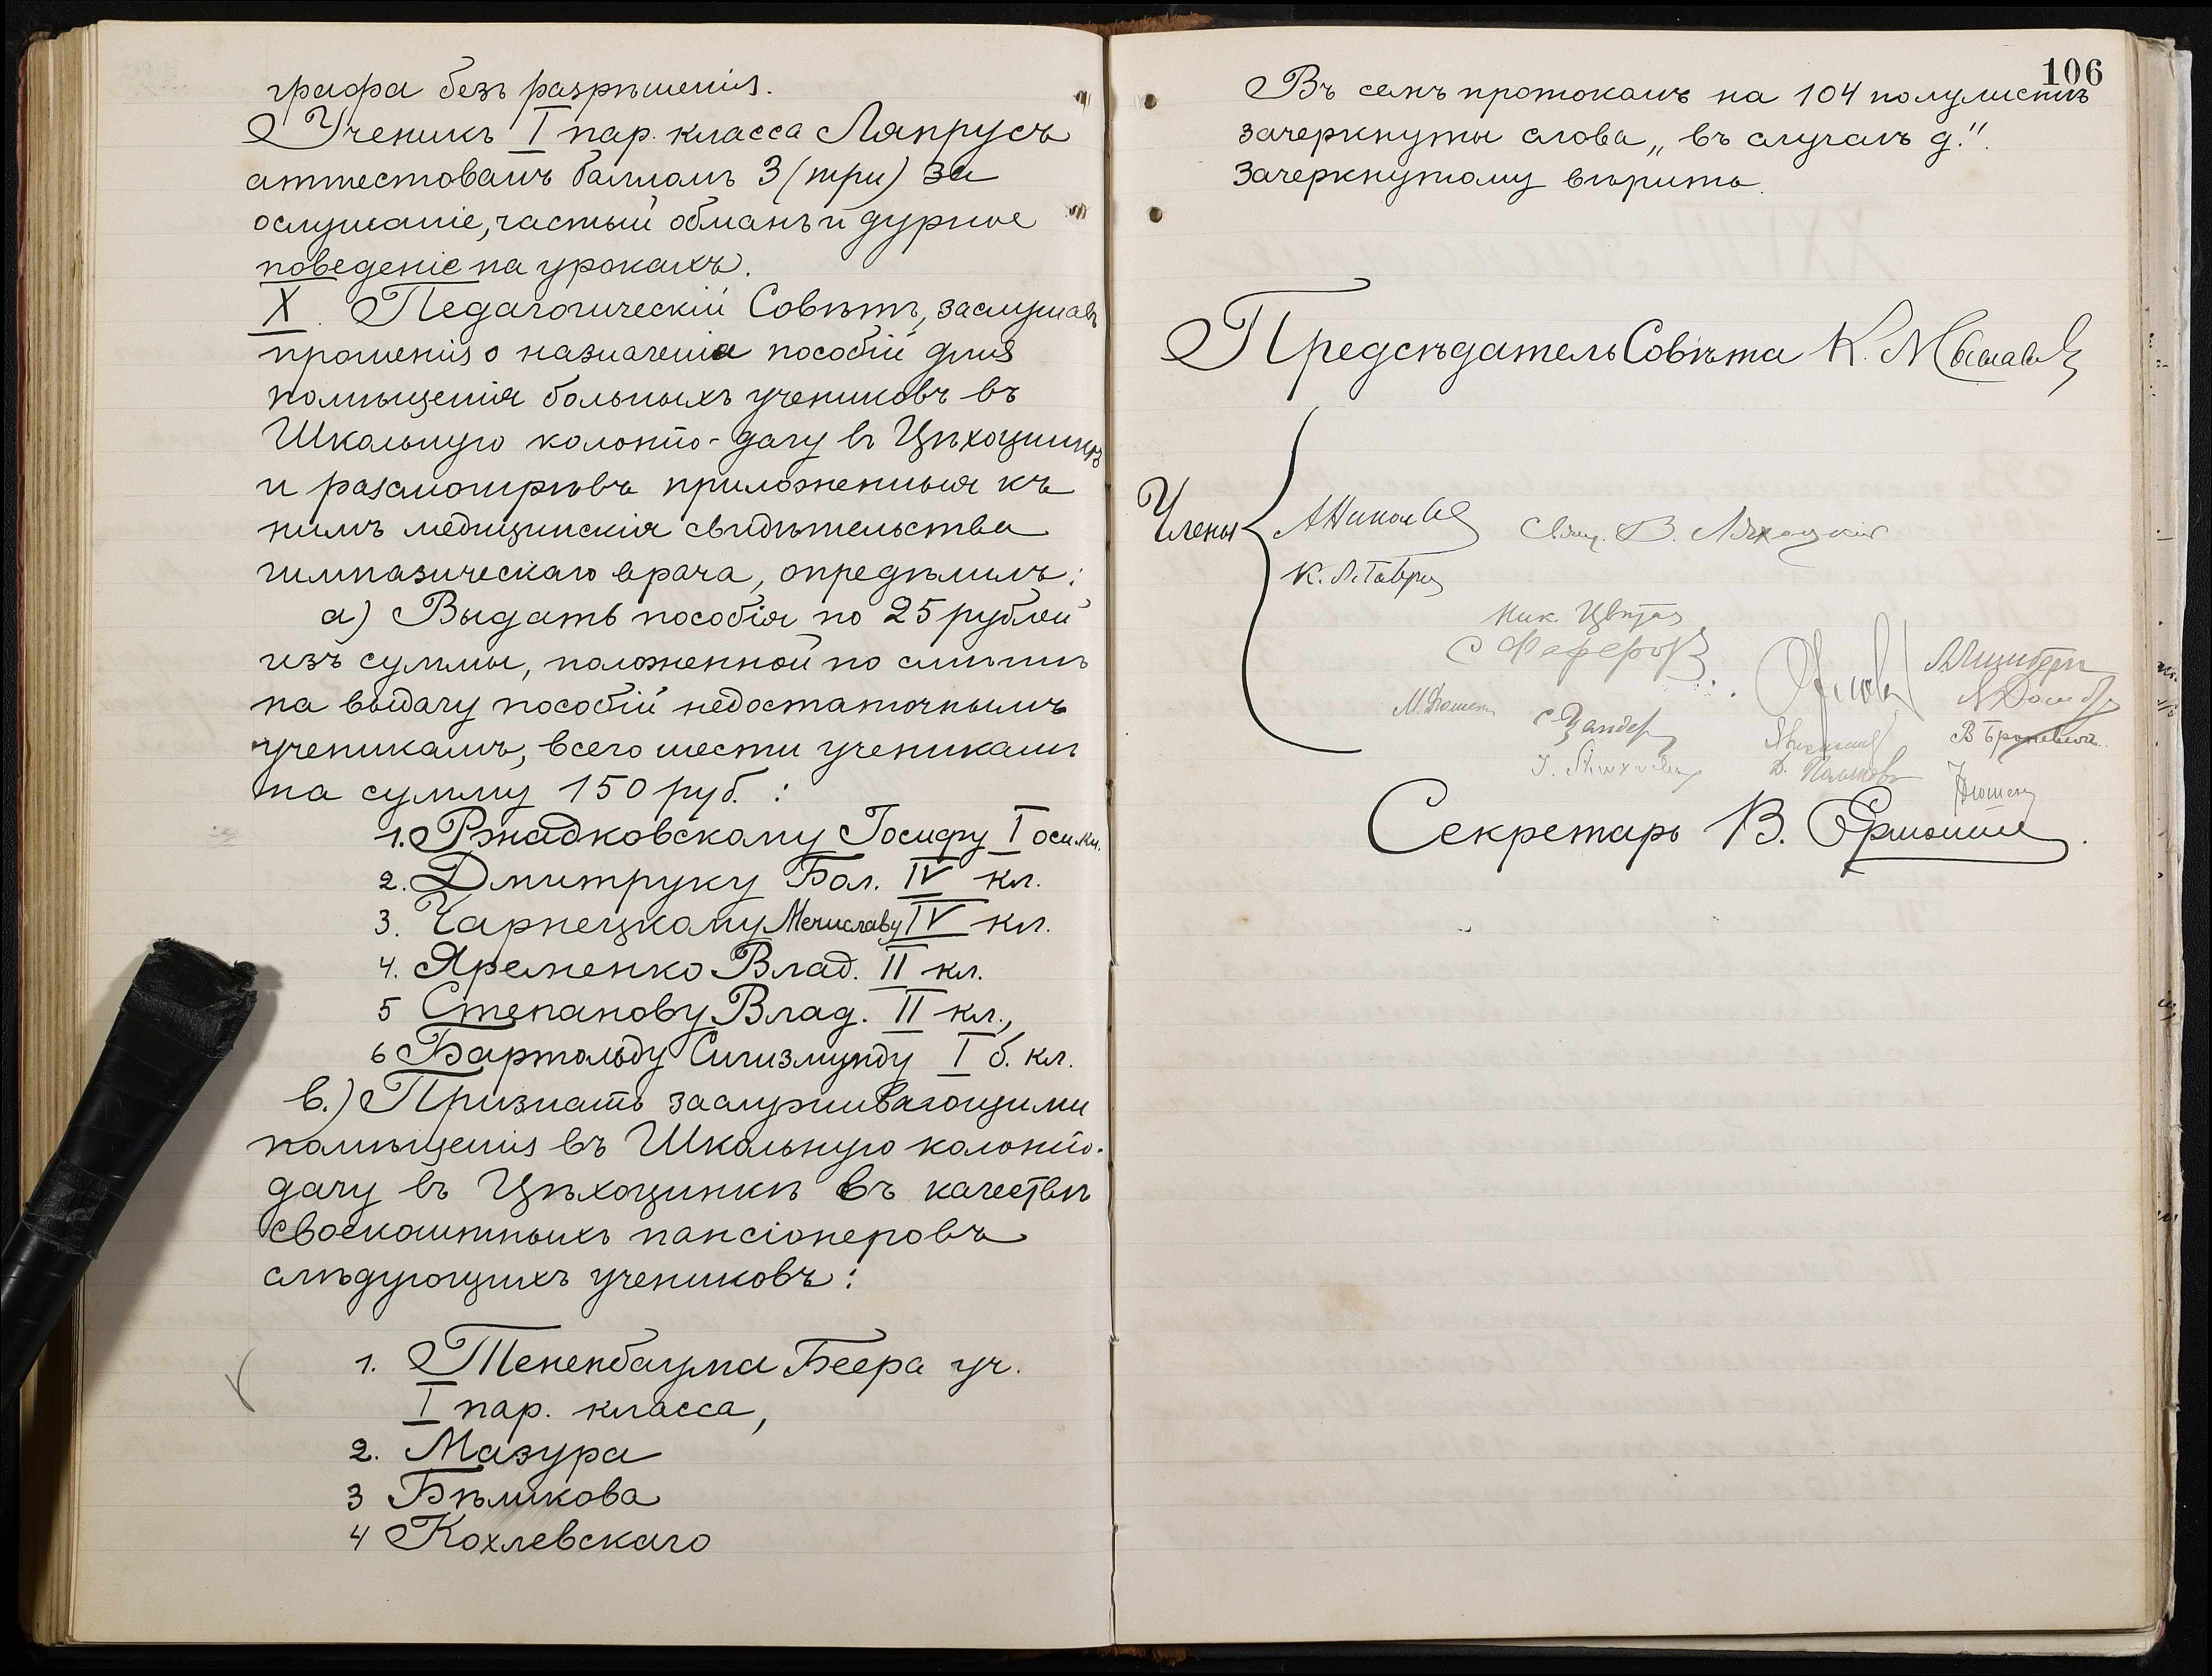 графа безъ разрѣшенія.
Ученикъ I пар. класса Ляпрусъ
аттестованъ балломъ 3 (три) за
ослушаніе, частый обманъ и дурное
поведеніе на урокахъ.
X. Педагогическій Совѣтъ, заслушавъ
прошенія о назначеніи пособій для
помѣщенія больныхъ учениковъ въ
Школьную колонію-дачу въ Цѣхоцинкѣ
и разсмотрѣвъ приложенныя къ
нимъ медицинскія свидѣтельства
гимназическаго врача, опредѣлилъ:
а) Выдать пособія по 25 рублей
изъ суммы, положенной по смѣтѣ
на выдачу пособій недостаточнымъ
ученикамъ, всего шести ученикамъ
на сумму 150 руб.:
1. Ржадковскому Іосифу I осн. кл.
2. Дмитруку Бол. IV кл.
3. Чарнецкому Мечиславу IV кл.
4. Яременко Влад. II кл.
5 Степанову Влад. II кл.,
6 Бартольду Сигизмунду I б. кл.
в.) Признать заслуживающими
помѣщенія въ Школьную колонію-
дачу въ Цѣхоцинкѣ въ качествѣ
своекоштныхъ пансіонеровъ
слѣдующихъ учениковъ:
1. Тененбаума Беера уч.
I пар. класса,
2. Мазура
3 Бѣликова
4 Кохлевскаго
106
Въ семъ протоколѣ на 104 полулистѣ
зачеркнуты слова „въ случаѣ д."
Зачеркнутому вѣрить.
Предсѣдатель Совѣта К.
Члены
Свящ. В.
К.
Ник.
С
М.
С. Цандер
В
Д.
Секретарь В.